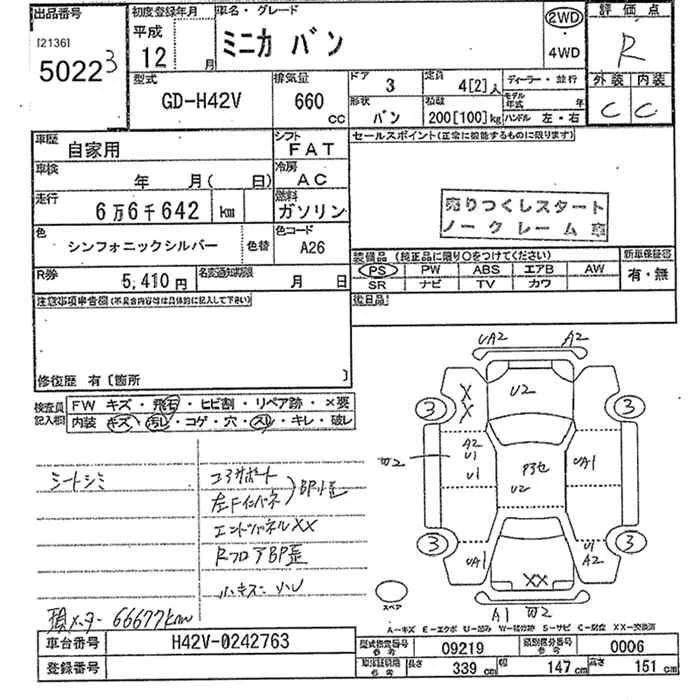 出品番号 初度登録年月 車名・グレード 評価点
[21361 平成 ミニカ バン 2WD・4WD R
50223 12 月
型式 排気量 ドア 3 定員 4[2]人 ディーラー・並行 外装 内装
GD-H42V 660 cc 形状 バン 積載 200[100]kg モデル年式 年 ハンドル 左・右 C C
車歴 自家用 シフト FAT セールスポイント(正常に機能するものに限ります)
車検 年 月( 日) 冷房 AC
走行 6万6千642 km 燃料 ガソリン 売りつくしスタート
ノークレーム
色 シンフォニックシルバー 色替 色コード A26
装備品 (純正品に限り○をつけてください) 新車保証書
PS PW ABS エアB AW 有・無
R券 5,410円 名変通知期限 月 日 SR ナビ TV カワ
注意事項申告欄(不具合内容等は具体的に記入して下さい) 後日品
修復歴 有〔箇所 〕
検査員記入欄 FW キズ・飛石・ヒビ割・リペア跡・×要
内装 キズ・汚レ・コゲ・穴・スレ・キレ・破レ
シートシミ
コアサポート
左Fインパネ BP小歪
エンドパネルXX
RフロアBP歪
小キズ・小U
積メーター 66677km
UA2 A2
X U2
X
3 3
A2
W2 U1 P3セ UA1
U1 U2
3 3
UA1 U1
A2
XX
スペア A1 W2
A-キズ E-エクボ U-凹み W-補修跡 S-サビ C-腐食 XX-交換済
車台番号 H42V-0242763 型式指定番号 参考 09219 類別区分番号 参考 0006
登録番号 車両諸元 参考 長さ 339 cm 幅 147 cm 高さ 151 cm